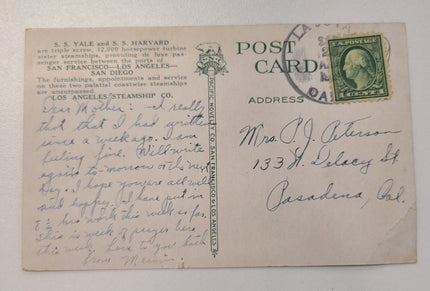 S. S. YALE and S. S. HARVARD
are triple screw, 12,000 horsepower turbine
sister steamships, providing de luxe pas-
senger service between the ports of
SAN FRANCISCO—LOS ANGELES—
SAN DIEGO
The furnishings, appointments and service
on these two palatial coastwise steamships
are unsurpassed.
LOS ANGELES STEAMSHIP CO.
Dear Mother: - I really
that that I had written
since a week ago. I am
feeling fine. Will write
again to-morrow or the next
day. I hope you are all well
and happy. I have put in
8½ hrs work this week so far.
This is week of prayer here
this week. Love to you
from
PACIFIC NOVELTY CO. SAN FRANCISCO & LOS ANGELES
POST
CARD
ADDRESS
LA
CAL
1 CENT 1
Mrs. P. J. Peterson
133 N. Delacy St
Pasadena, Cal.